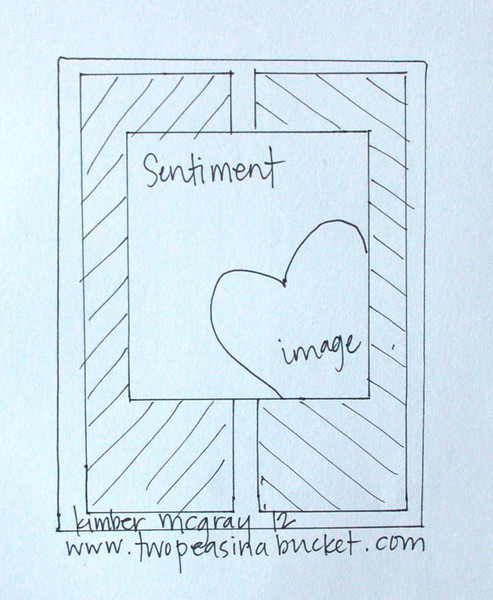 Sentiment
image
kimber mcgray 12
www.twopeasinabucket.com